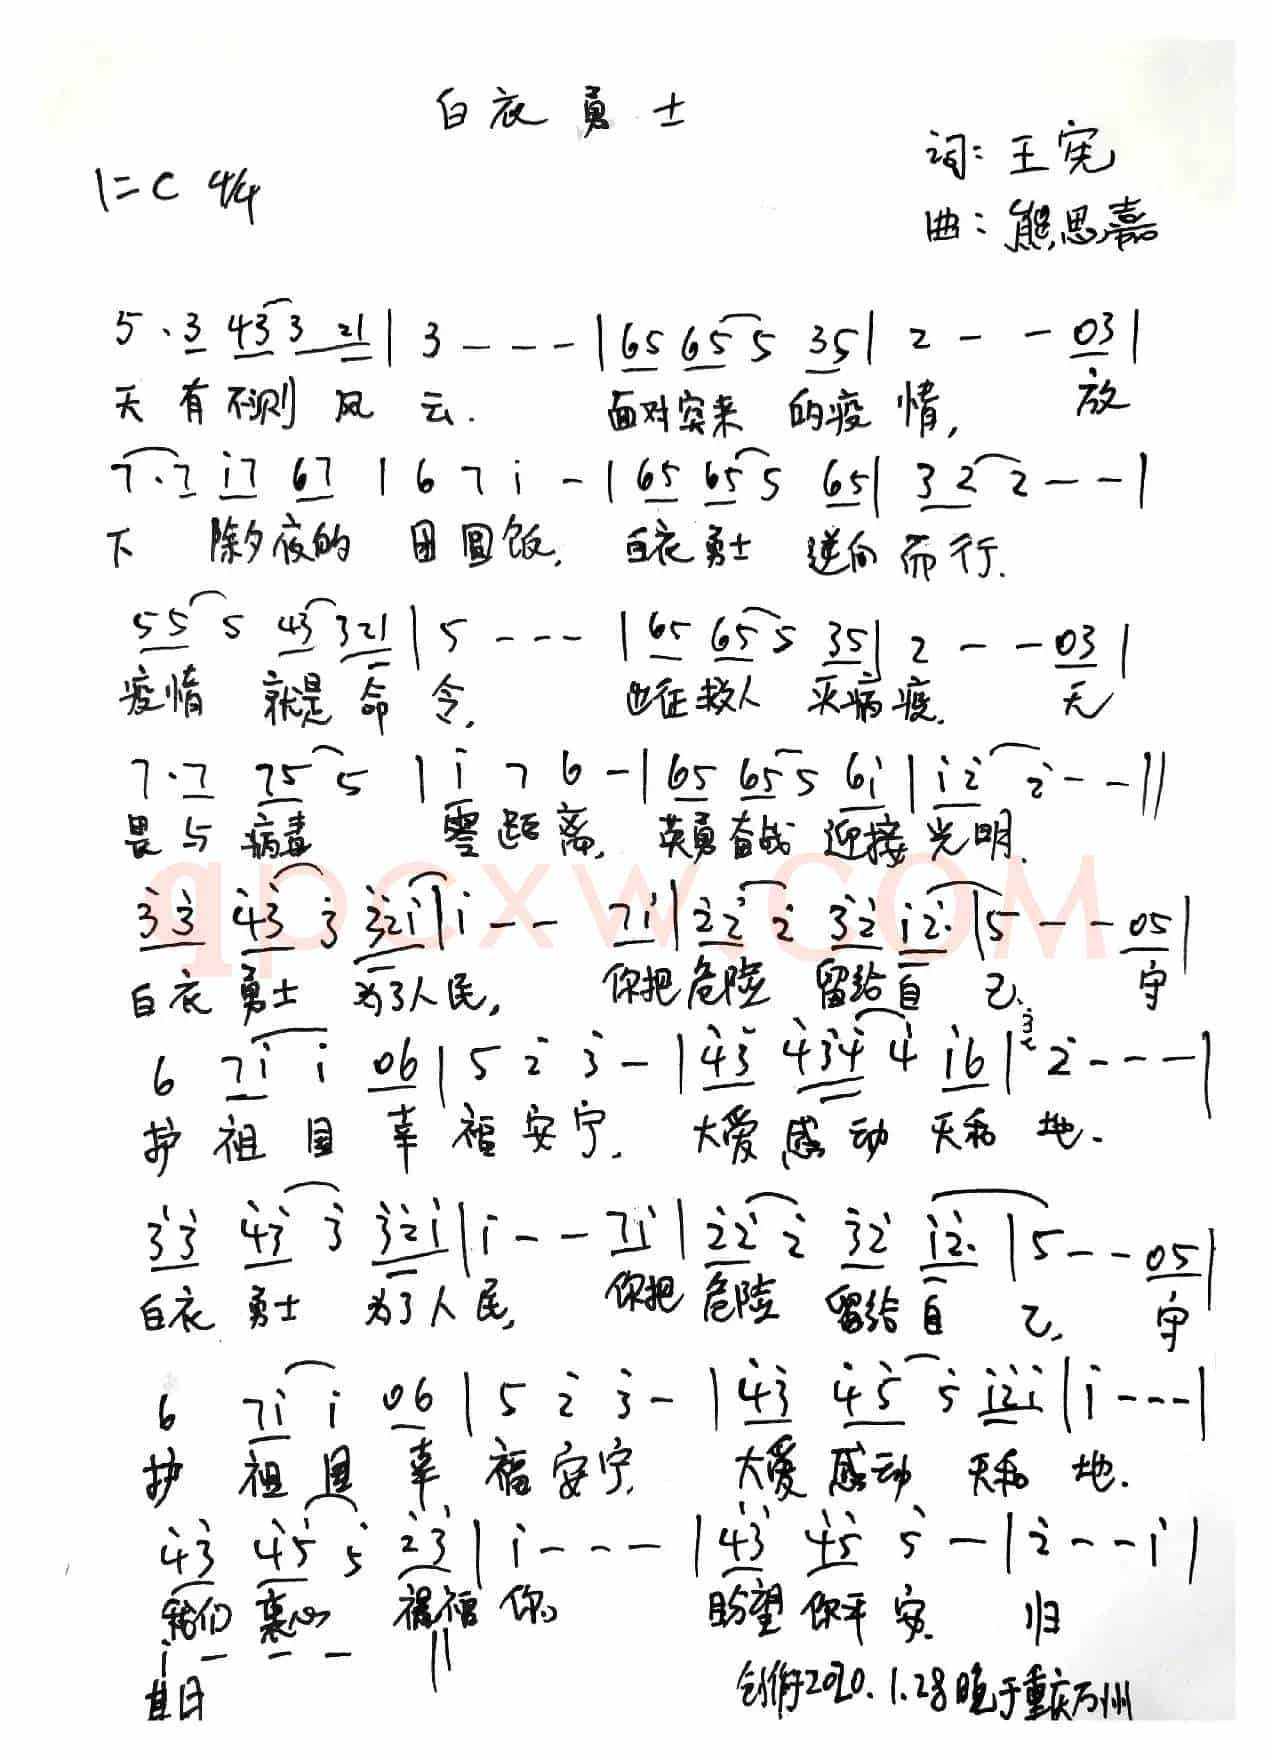 白衣勇士
1=C 4/4
词：王宪
曲：熊思嘉
5·3 43 3 21 | 3 - - - | 65 65 5 35 | 2 - - 03 |
天有不测风云. 面对突来的疫情, 放
7·7 i7 67 | 6 7 i - | 65 65 5 65 | 3 2 2 - - |
下 除夕夜的 团圆饭, 白衣勇士 逆向而行.
55 5 43 321 | 5 - - - | 65 65 5 35 | 2 - - 03 |
疫情 就是命令, 出征救人 灭病疫. 无
7·7 75 5 | i 7 6 - | 65 65 5 6i | i2 2 - - ||
畏与病毒 零距离, 英勇奋战 迎接光明.
qpcxw.com
33 43 3 32i | i - - 7i | 22 2 32 i2· | 5 - - 05 |
白衣勇士 为了人民, 你把危险 留给自己, 守
6 7i i 06 | 5 2 3 - | 43 434 4 i6 | 3 2 - - - |
护祖国 幸福安宁. 大爱感动 天和地.
33 43 3 32i | i - - 7i | 22 2 32 i2· | 5 - - 05 |
白衣勇士 为了人民, 你把危险 留给自己, 守
6 7i i 06 | 5 2 3 - | 43 45 5 i2i | i - - - |
护祖国 幸福安宁, 大爱感动 天和地.
43 45 5 23 | i - - - | 43 45 5 - | 2 - - i |
我们衷心 祝福你, 盼望你平安. 归
i - - - ||
其日
创作于2020.1.28晚于重庆万州